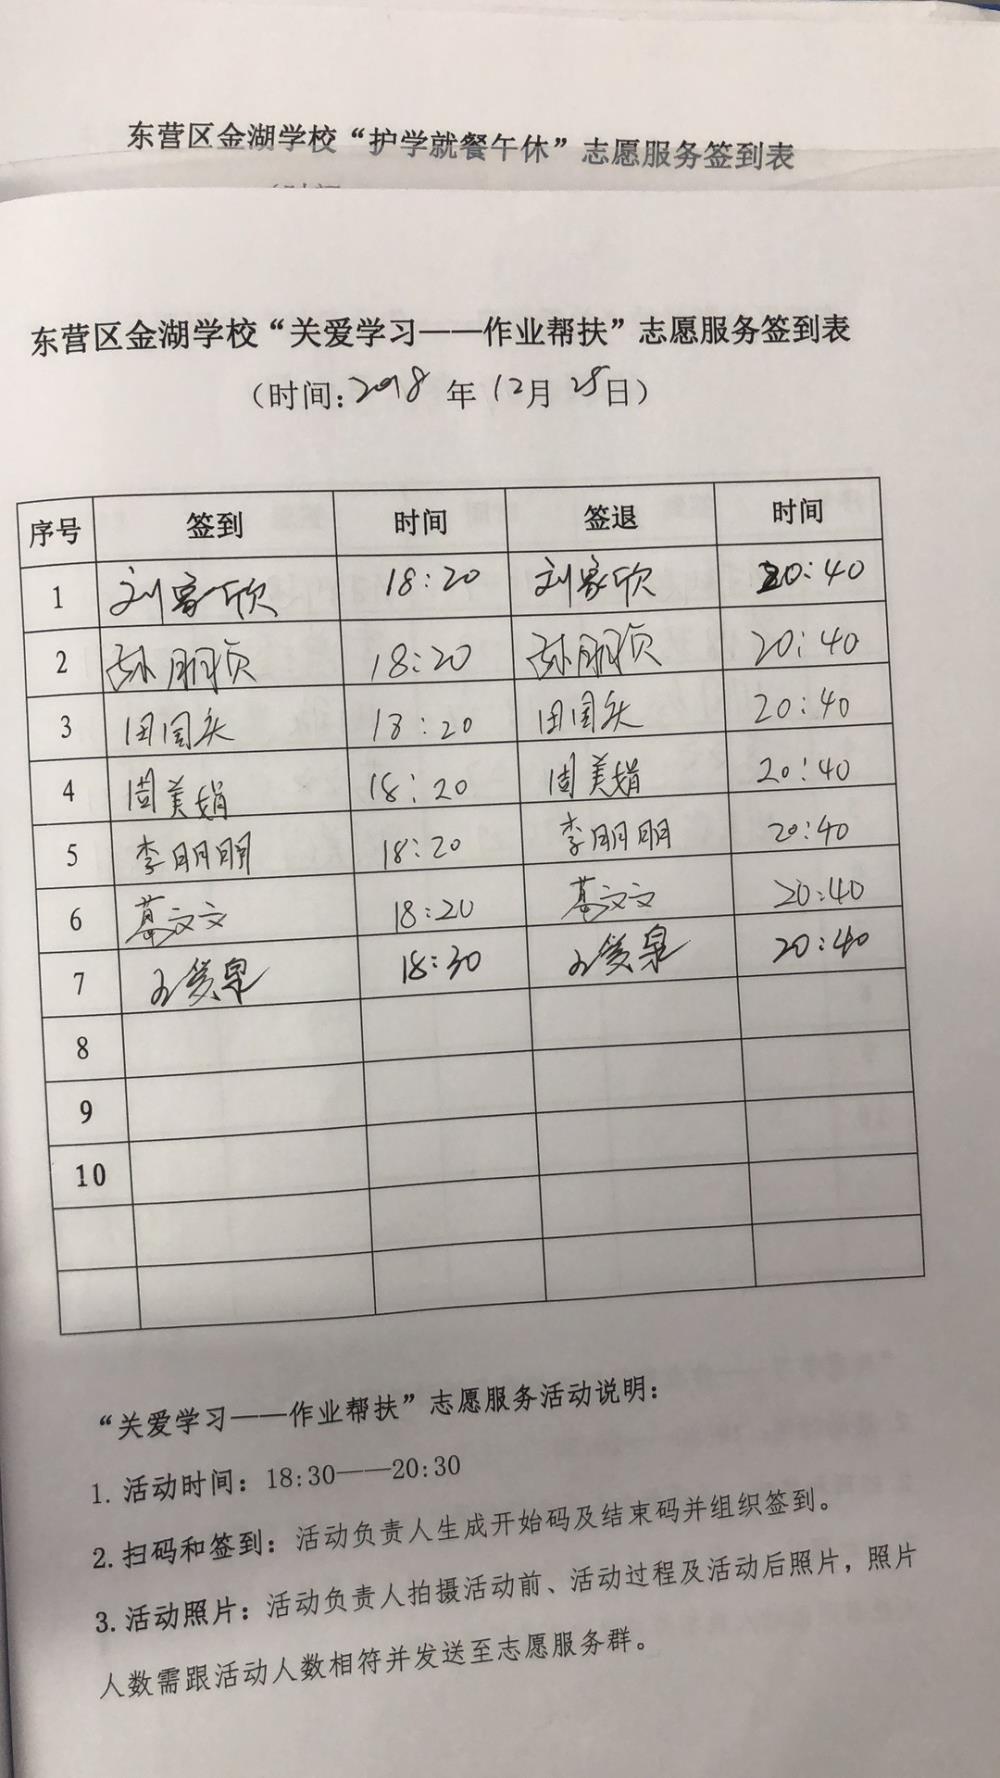 东营区金湖学校“护学就餐午休”志愿服务签到表
东营区金湖学校“关爱学习——作业帮扶”志愿服务签到表
（时间：2018 年 12月 28日）
序号 签到 时间 签退 时间
1 刘家欣 18:20 刘家欣 20:40
2 孙朋贞 18:20 孙朋贞 20:40
3 田国庆 18:20 田国庆 20:40
4 周美娟 18:20 周美娟 20:40
5 李明明 18:20 李明明 20:40
6 葛文文 18:20 葛文文 20:40
7 18:30 20:40
8
9
10
“关爱学习——作业帮扶”志愿服务活动说明：
1. 活动时间：18:30——20:30
2. 扫码和签到：活动负责人生成开始码及结束码并组织签到。
3. 活动照片：活动负责人拍摄活动前、活动过程及活动后照片，照片
人数需跟活动人数相符并发送至志愿服务群。